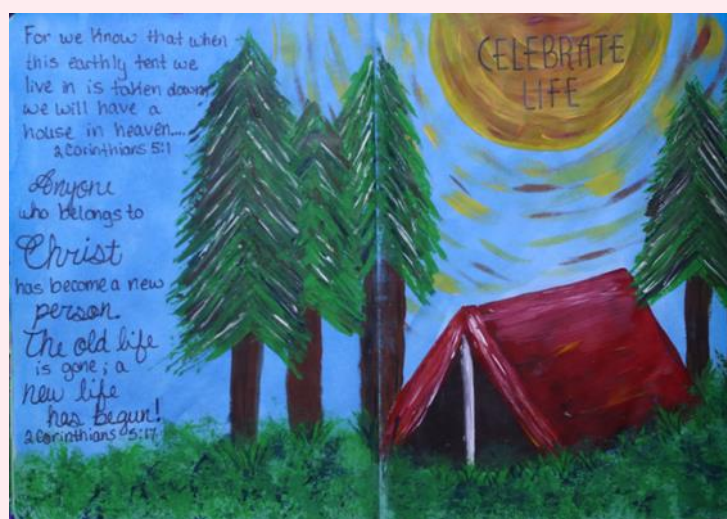 For we know that when
this earthly tent we
live in is taken down
we will have a
house in heaven....
2 Corinthians 5:1
Anyone
who belongs to
Christ
has become a new
person.
The old life
is gone; a
new life
has begun!
2 Corinthians 5:17
CELEBRATE
LIFE